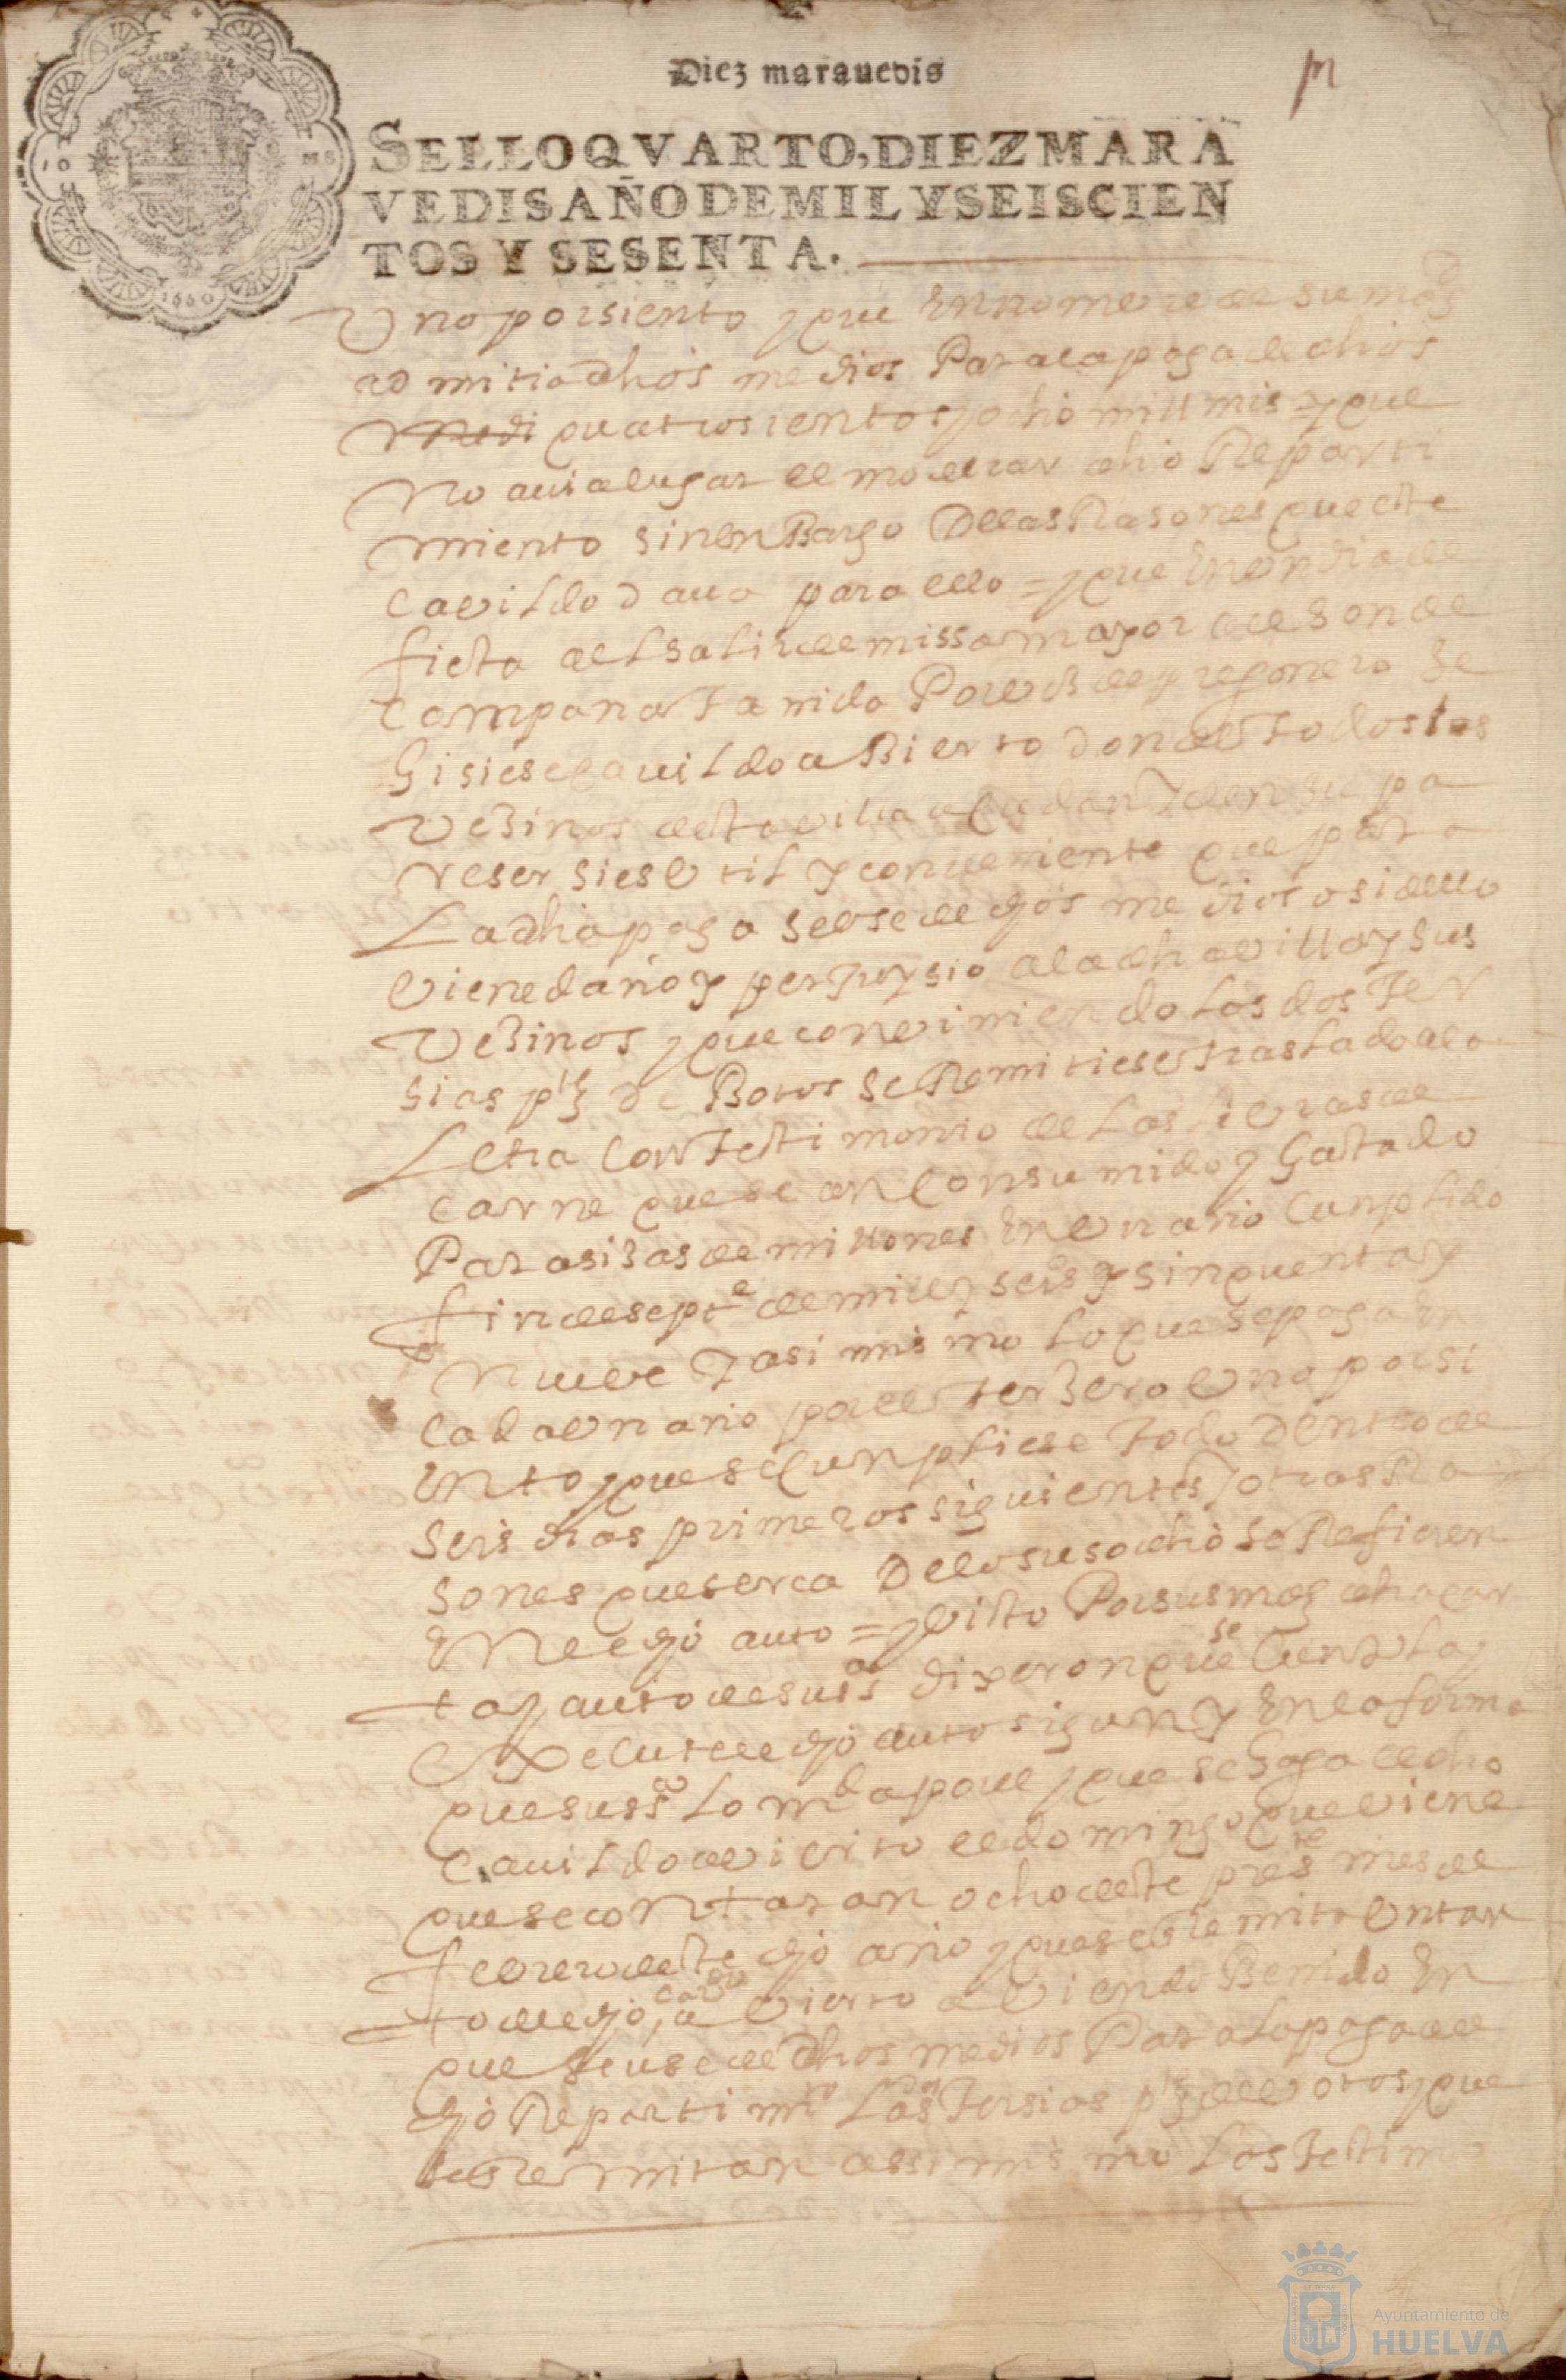 Diez marauedis
SELLO QVARTO, DIEZ MARA
VEDIS AÑO DE MIL Y SEISCIEN
TOS Y SESENTA.
10 MS
1660
Uno por siento y que En nombre de su magd
admitia dhos medios Para la paga de dhos
medi quatrosientos y ocho mill mrs = y que
No auia lugar el moderar dho Reparti
miento sin enBargo De las Rasones que este
Cavildo dava para ello = y que En un dia de
fiesta al salir de missa mayor a el son de
Campana Tanida Por vos de pregonero se
hisiese Cauildo aBierto donde Todos los
Vezinos desta villa acudan y den su pa
reser si es util y conveniente que para
La dha paga se use de dhos medios o si dello
viene daño y perjuysio a la dha villa y sus
Vezinos y que conviniendo las dos Ter
sias ptes de Botos se Remitiese trastado a la
Letra Con Testimonio de las libras de
carne que se an Consumido y Gastado
Para sisas de millones En un año Cunplido
fin de septe de mill y seisos y sinquenta y
Nueve Y asi mismo lo que se paga En
Cada un año por el terzero uno por si
Ento y que se Cunpliese Todo Dentro de
seis dias primeros siguientes y otras Ra
sones que serca De lo susodho se Refieren
En el dho auto = y visto Por sus mds dha car
ta y auto de su sa dixeron que se Cunpla y
Execute el dho auto sigun y En la forma
que su ssa lo mda por el y que se haga el dho
Cauildo avierto el domingo que viene
que se contaran ocho deste preste mes de
febrero deste dho año y que se le remita un tan
to del dho cavdo avierto aviendo Benido En
que se use de dhos medios Para la paga del
dho Repartimto Las dos Tersias ptes de votos y que
se le remitan assi mismo Los Testimo
Ayuntamiento de
HUELVA